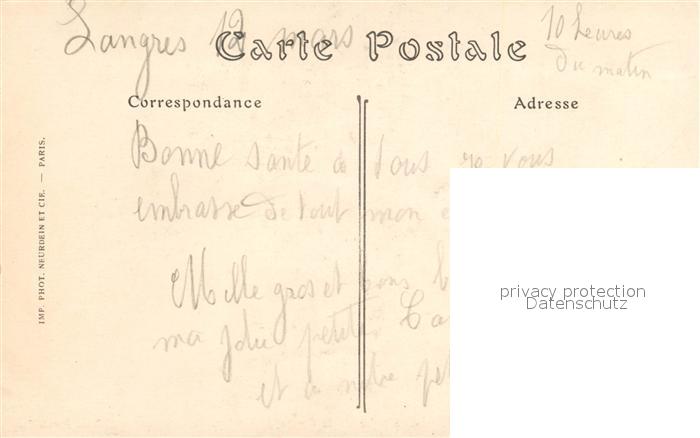 Langres 12 mars
10 heures
du matin
Carte Postale
Correspondance
Adresse
Bonne santé à tous je vous
embrasse de tout mon
Mille gros et bons
ma jolie petite
et a notre
IMP. PHOT. NEURDEIN ET CIE. — PARIS.
privacy protection
Datenschutz